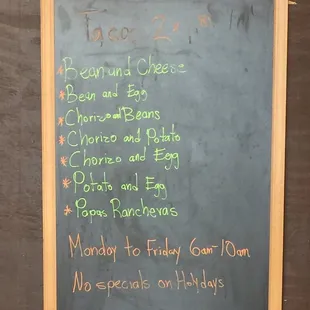 Tacos 2x
*Bean and Cheese
*Bean and Egg
*Chorizo and Beans
*Chorizo and Potato
*Chorizo and Egg
*Potato and Egg
*Papas Rancheras
Monday to Friday 6am-10am
No specials on Holydays